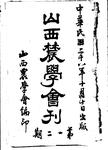 中華民國二十八年十月十日出版
山西農學會刊
第一二期
山西農學會編印